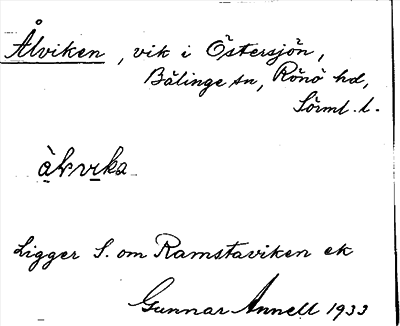 Ålviken, vik i Östersjön,
Bälinge sn, Rönö hd,
Sörml. l.
Ligger S. om Ramstaviken ek
Gunnar Annell 1933